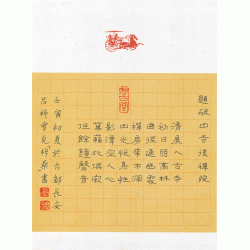 題破山寺後禪院
清晨入古寺
初日明高林
曲徑通幽處
禪房花木深
山光悅鳥性
潭影空人心
萬籟此俱寂
但餘鐘磬音
壬寅初夏於古都長安